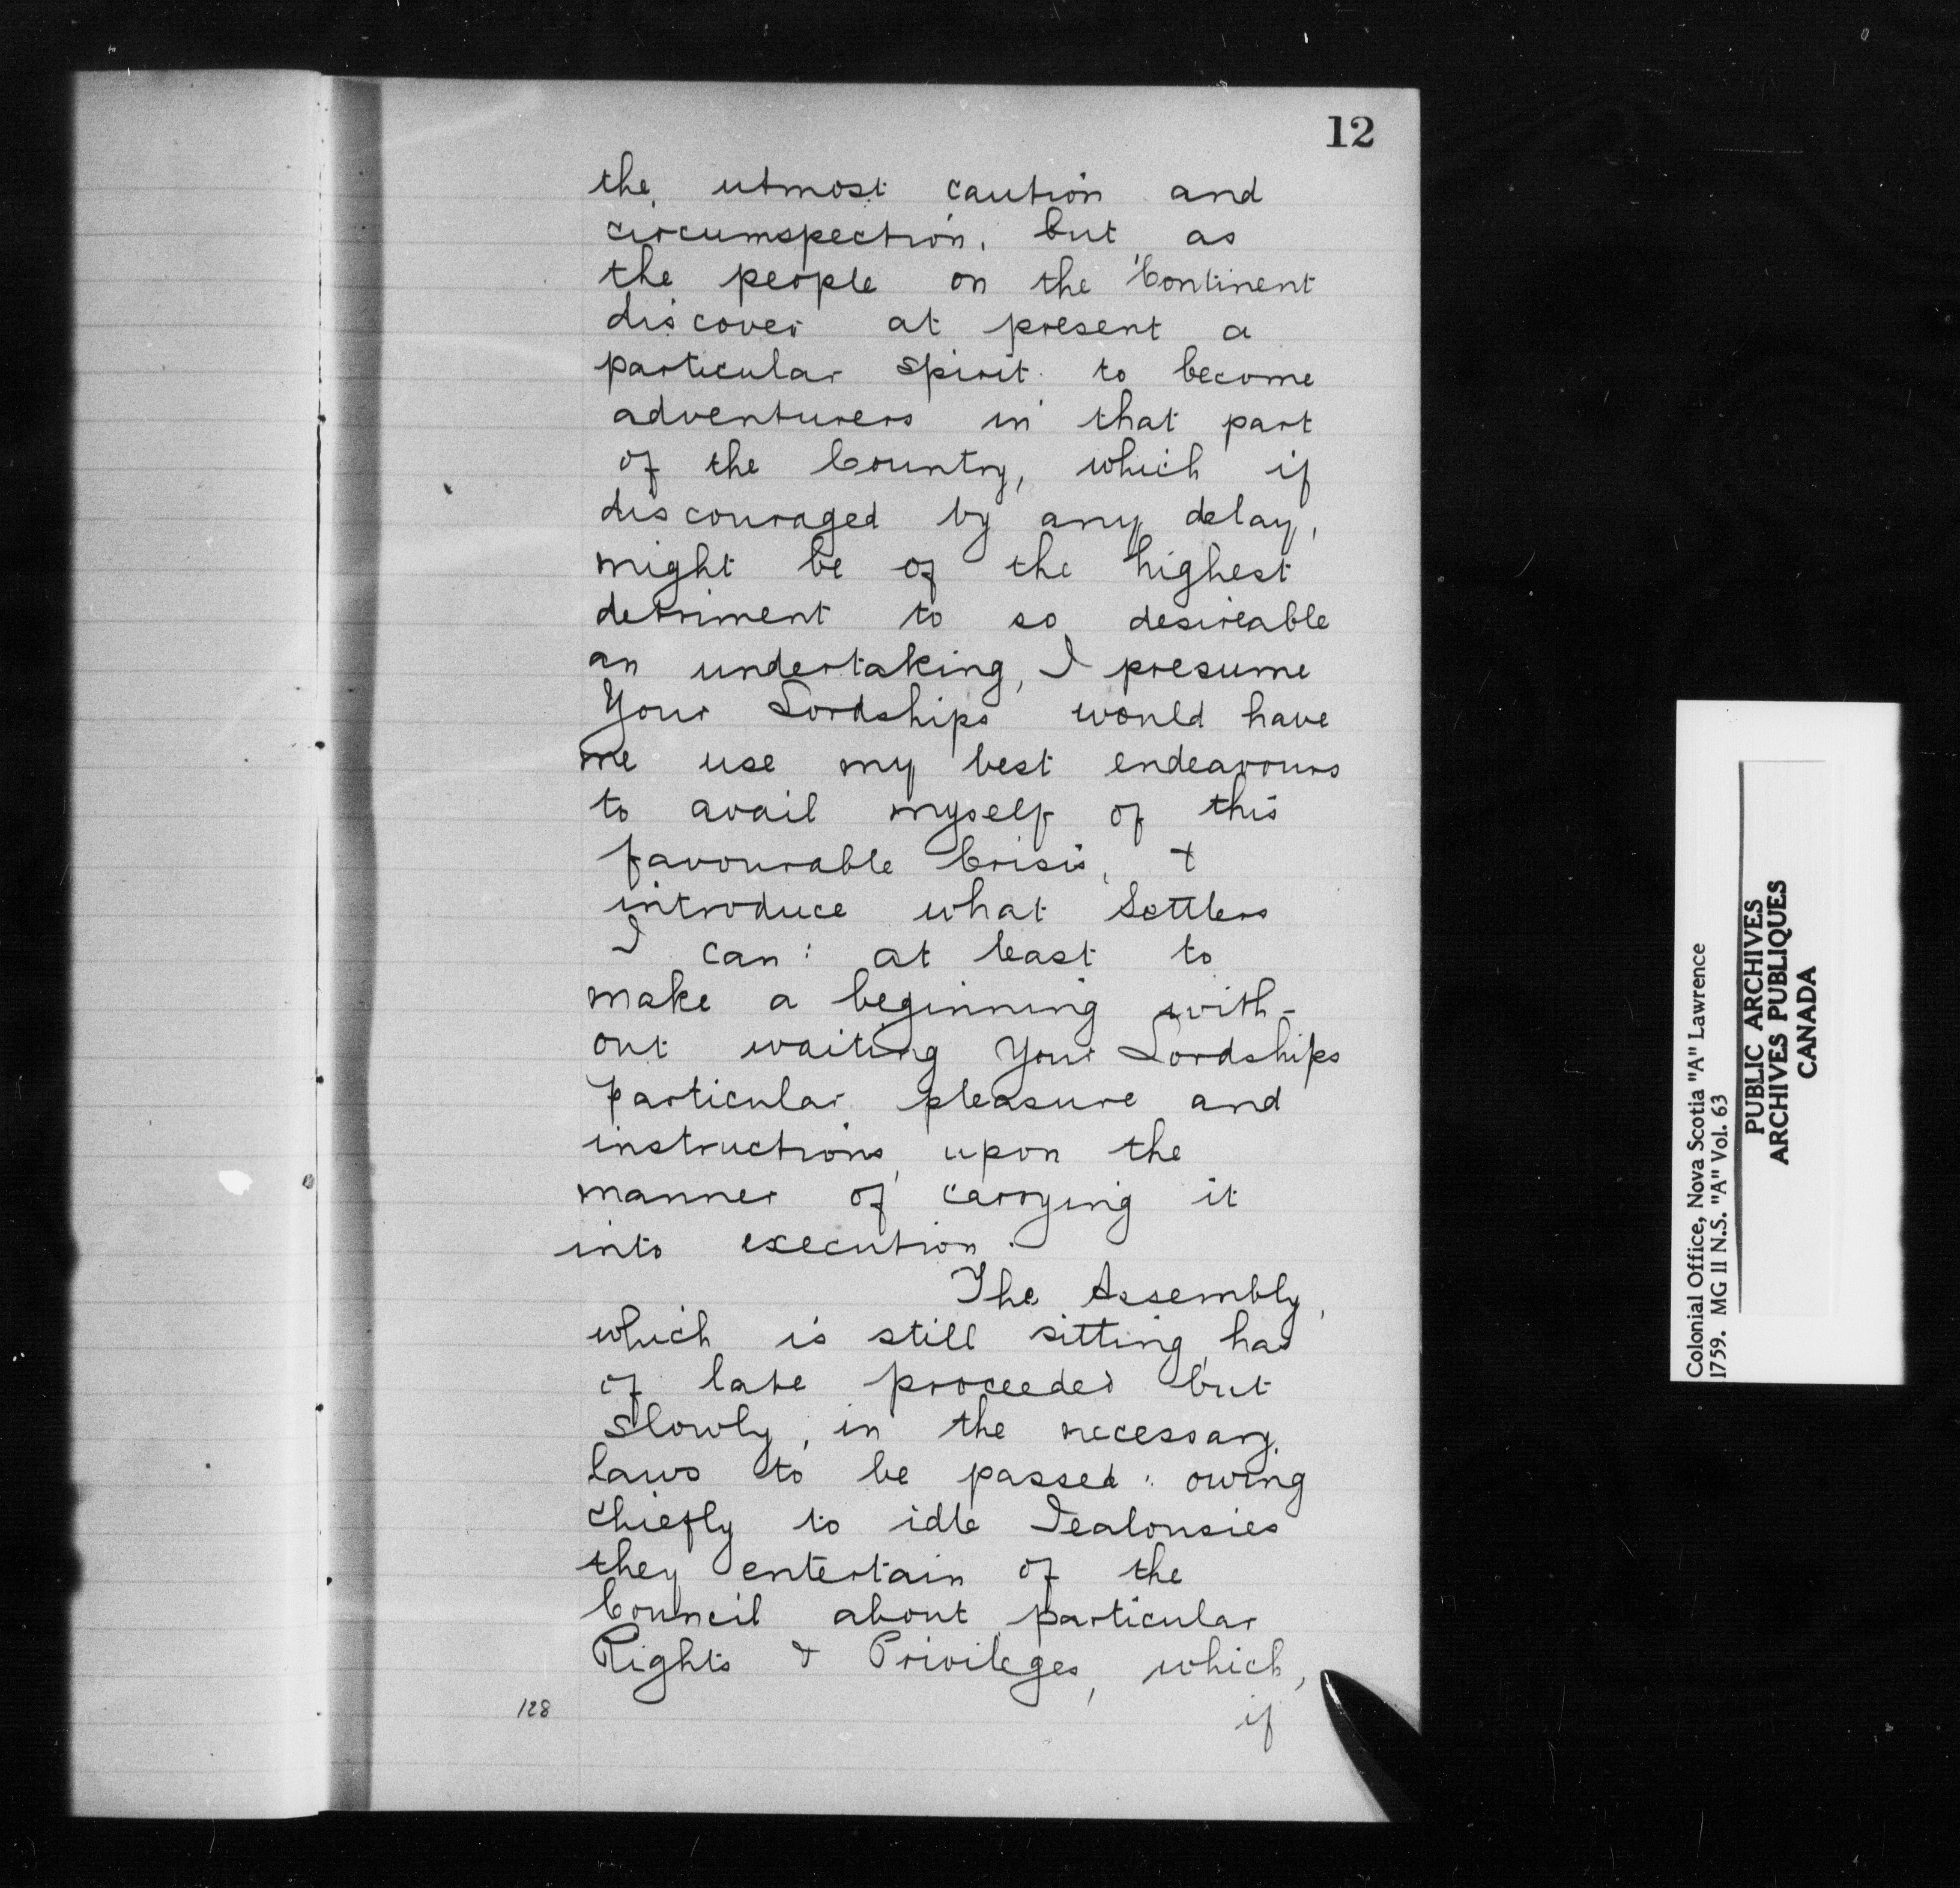 12
the utmost caution and
circumspection, but as
the people on the Continent
discover at present a
particular spirit to become
adventurers in that part
of the Country, which if
discouraged by any delay,
might be of the highest
detriment to so desireable
an undertaking, I presume
Your Lordships would have
me use my best endeavours
to avail myself of this
favourable Crisis, &
introduce what Settlers
I can: at least to
make a beginning with-
out waiting Your Lordships
particular pleasure and
instructions upon the
manner of carrying it
into execution.
The Assembly,
which is still sitting, has
of late proceeded but
slowly, in the necessary
laws to be passed: owing
chiefly to idle Jealousies
they entertain of the
Council about particular
Rights & Privileges, which,
if
128
Colonial Office, Nova Scotia "A" Lawrence
1759. MG 11 N.S. "A" Vol. 63
PUBLIC ARCHIVES
ARCHIVES PUBLIQUES
CANADA